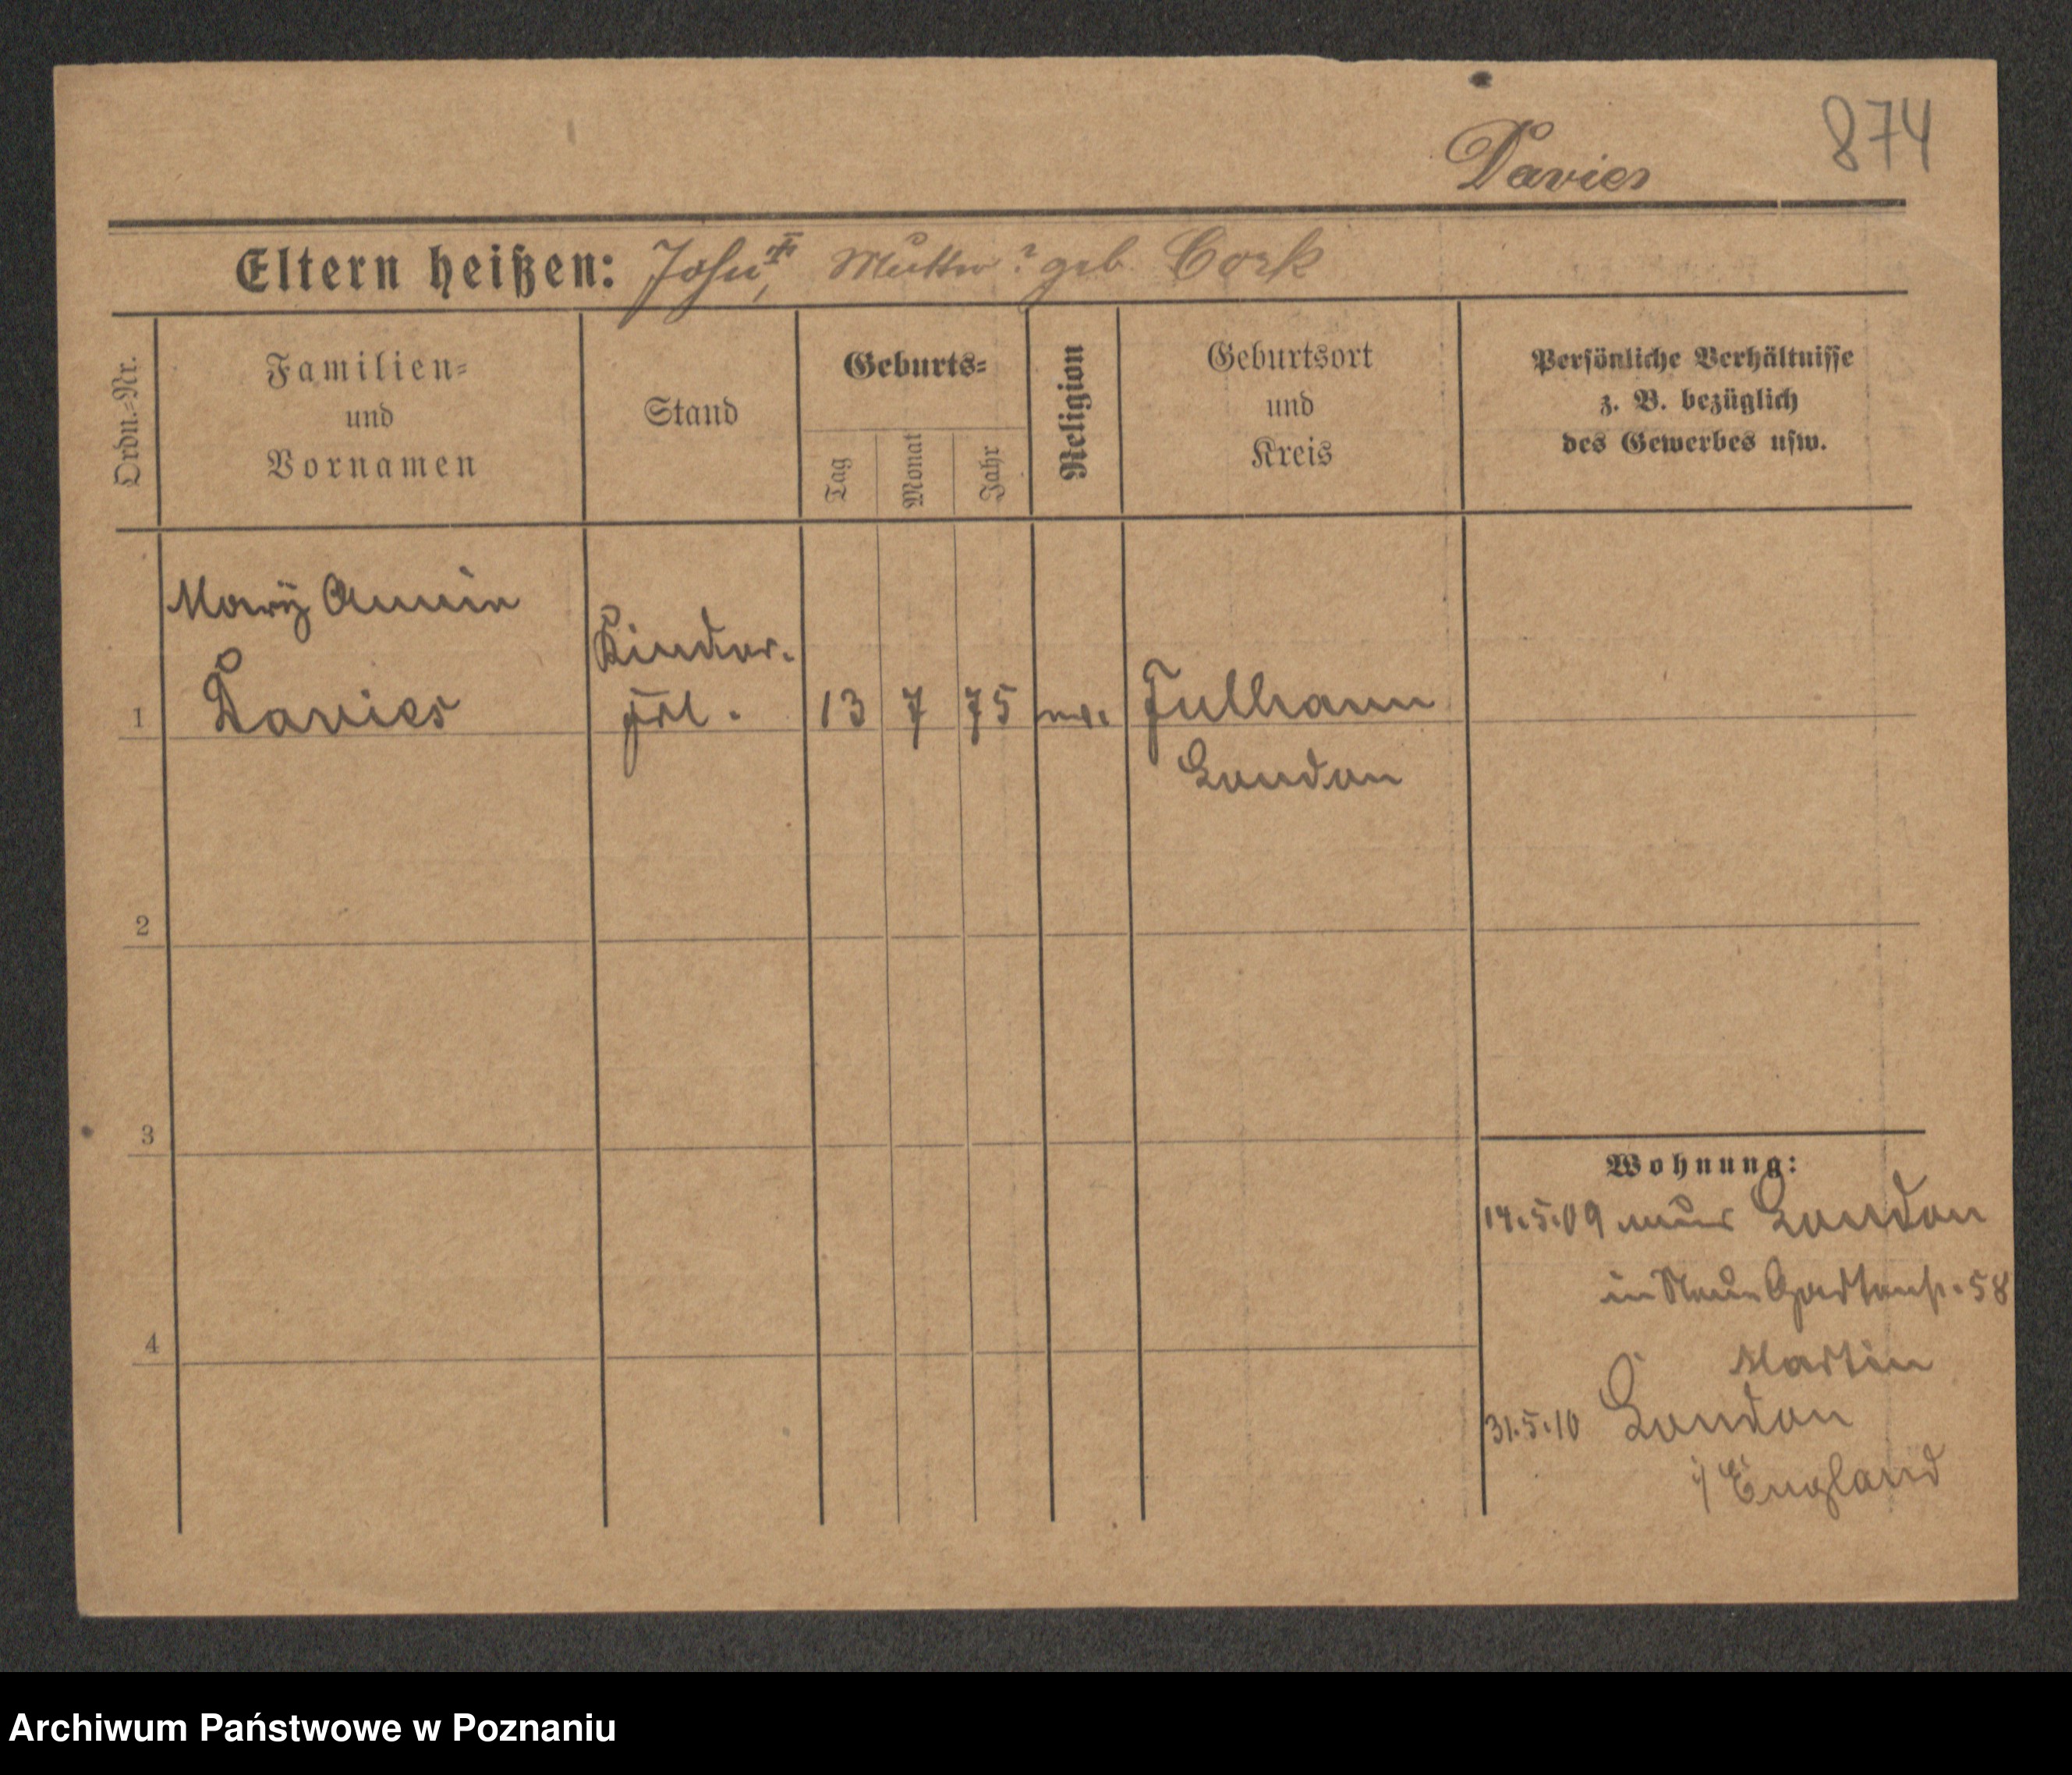 874
Davies
Eltern heißen: John, Mutter ? geb. Cork
Ordn.-Nr.
Familien-
und
Vornamen
Stand
Geburts-
Tag
Monat
Jahr
Religion
Geburtsort
und
Kreis
Persönliche Verhältnisse
z. B. bezüglich
des Gewerbes usw.
Mary
Davies
Kinder-
frl.
1
13
7
75
Fulham
London
2
3
4
Wohnung:
14.5.09 London
in Neue Gartenstr. 58
Martin
31.5.10 London
i/England
Archiwum Państwowe w Poznaniu